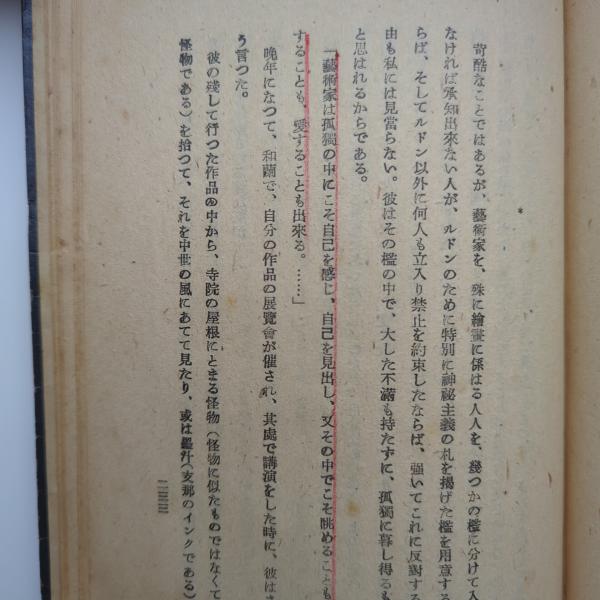 苛酷なことではあるが、藝術家を、殊に繪畫に係はる人人を、幾つかの檻に分けて入
なければ承知出來ない人が、ルドンのために特別に神祕主義の札を揭げた檻を用意する
らば、そしてルドン以外に何人も立入り禁止を約束したならば、强いてこれに反對する
由も私には見當らない。彼はその檻の中で、大した不滿も持たずに、孤獨に暮し得るも
と思はれるからである。
「藝術家は孤獨の中にこそ自己を感じ、自己を見出し、又その中でこそ眺めることも
することも、愛することも出來る。……」
晩年になつて、和蘭で、自分の作品の展覽會が催され、其處で講演をした時に、彼はさ
う言つた。
彼の殘して行つた作品の中から、寺院の屋根にとまる怪物（怪物に似たものではなくて
怪物である）を拾つて、それを中世の風にあてて見たり、或は墨汁（支那のインクである）